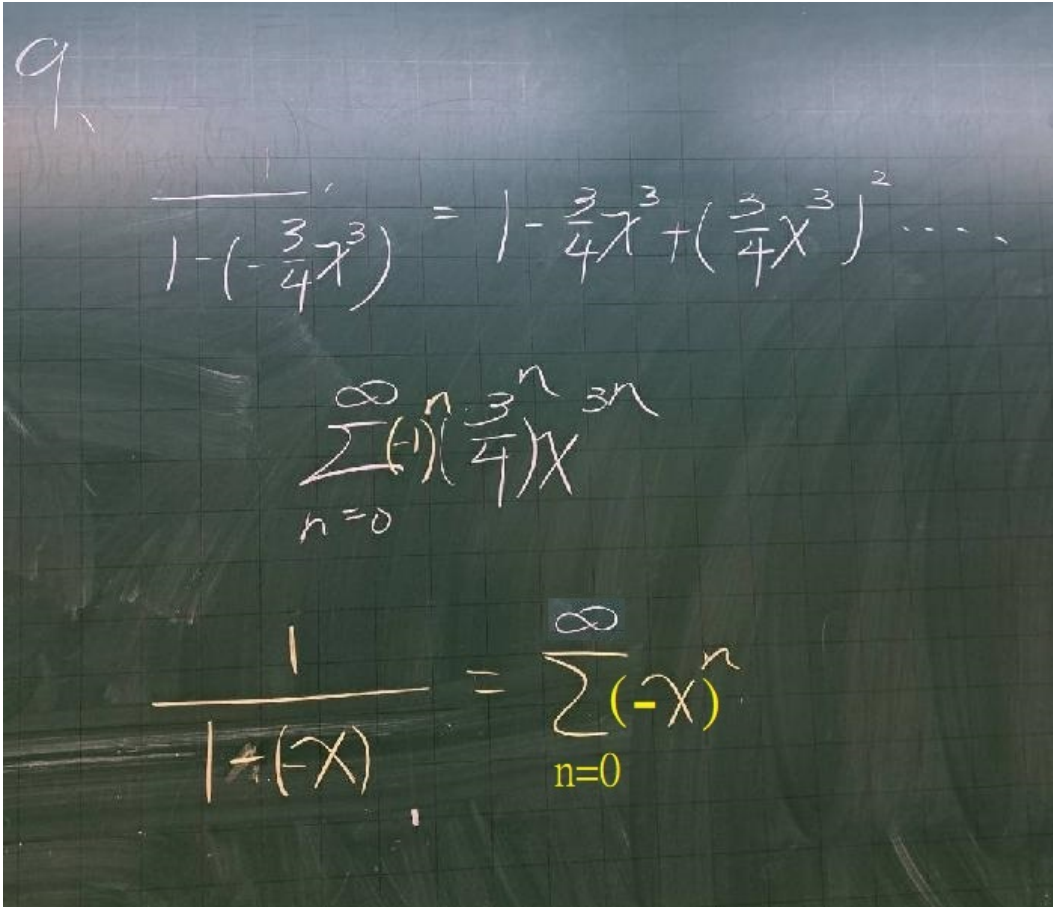 9、
\frac{1}{1-(-\frac{3}{4}x^3)} = 1-\frac{3}{4}x^3+(\frac{3}{4}x^3)^2 .....
\sum_{n=0}^{\infty}(-1)^n(\frac{3}{4})^n x^{3n}
\frac{1}{1-(-x)} = \sum_{n=0}^{\infty}(-x)^n